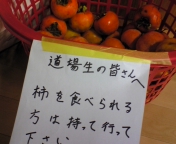 道場生の皆さんへ
柿を食べられる
方は持って行って
下さい